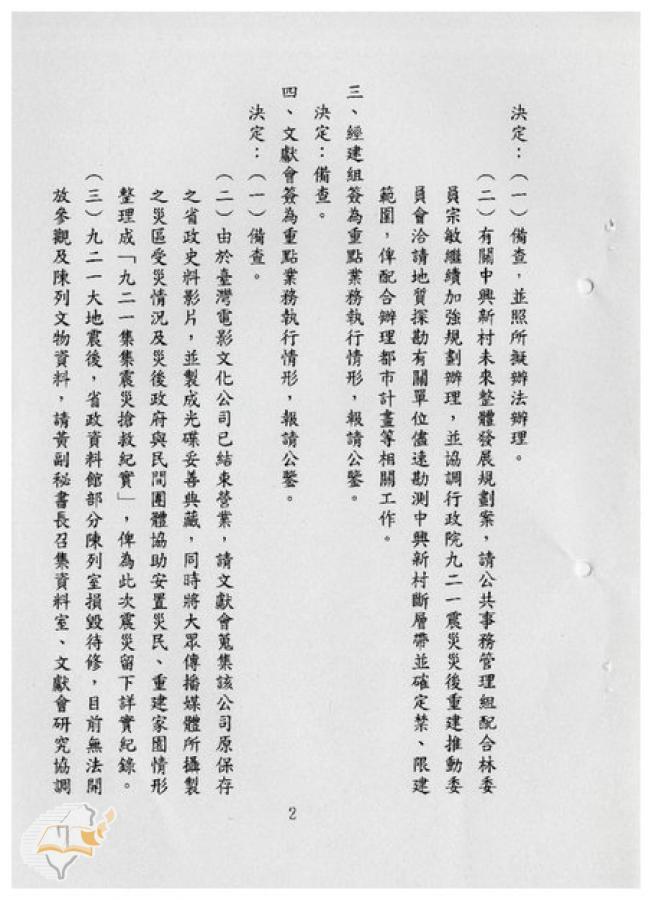 決定：（一）備查，並照所擬辦法辦理。
（二）有關中興新村未來整體發展規劃案，請公共事務管理組配合林委
員宗敏繼續加強規劃辦理，並協調行政院九二一震災災後重建推動委
員會洽請地質探勘有關單位儘速勘測中興新村斷層帶並確定禁、限建
範圍，俾配合辦理都市計畫等相關工作。
三、經建組簽為重點業務執行情形，報請公鑒。
決定：備查。
四、文獻會簽為重點業務執行情形，報請公鑒。
決定：（一）備查。
（二）由於臺灣電影文化公司已結束營業，請文獻會蒐集該公司原保存
之省政史料影片，並製成光碟妥善典藏，同時將大眾傳播媒體所攝製
之災區受災情況及災後政府與民間團體協助安置災民、重建家園情形
整理成「九二一集集震災搶救紀實」，俾為此次震災留下詳實紀錄。
（三）九二一大地震後，省政資料館部分陳列室損毀待修，目前無法開
放參觀及陳列文物資料，請黃副秘書長召集資料室、文獻會研究協調
2